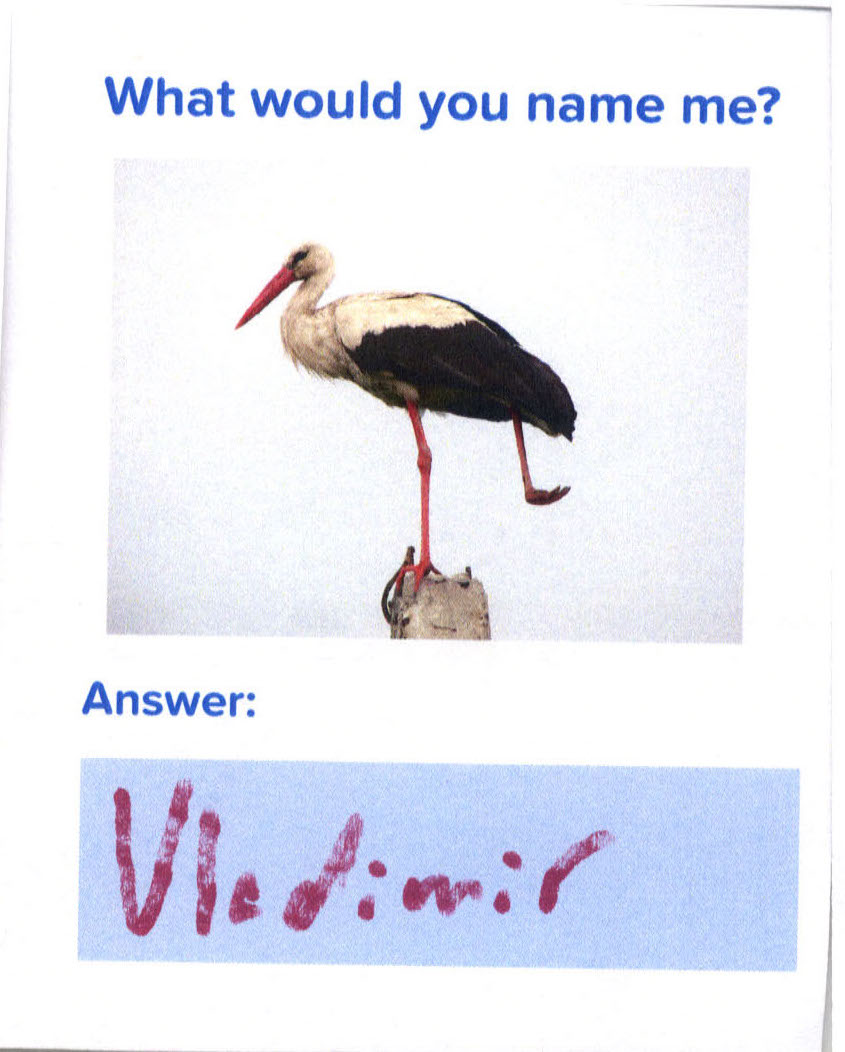 What would you name me?
Answer:
Vladimir